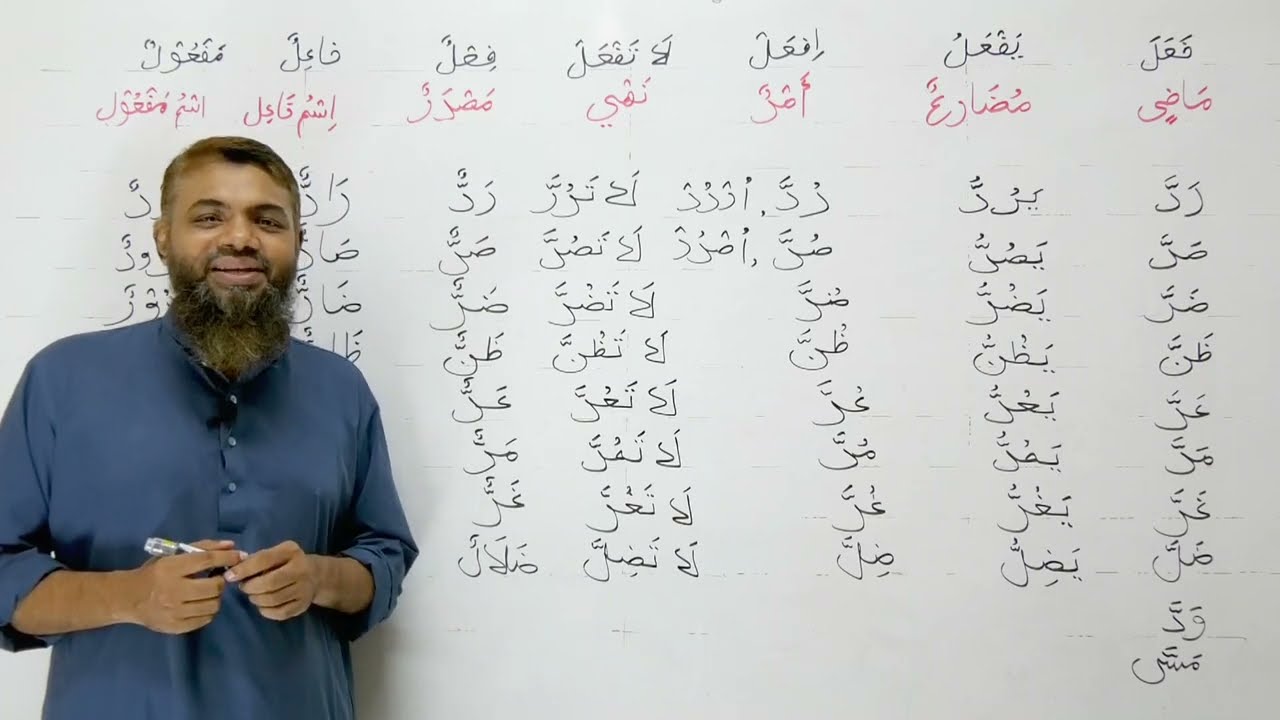 فَعَلَ يَفْعَلُ اِفْعَلْ لَا تَفْعَلْ فِعْلٌ فَاعِلٌ مَفْعُوْلٌ
مَاضِي مُضَارِعٌ أَمْرٌ نَهْي مَصْدَرٌ اِسْمُ فَاعِل اسْمُ مَفْعُوْل
رَدَّ يَرُدُّ رُدَّ , اُرْدُدْ لَا تَرُدَّ رَدٌّ رَادٌّ
صَرَّ يَصُرُّ صُرَّ , اُصْرُرْ لَا تَصُرَّ صَرٌّ
ضَرَّ يَضُرُّ ضُرَّ لَا تَضُرَّ ضَرٌّ ضَارٌّ
ظَنَّ يَظُنُّ ظُنَّ لَا تَظُنَّ ظَنٌّ
عَدَّ يَعُدُّ عُدَّ لَا تَعُدَّ عَدٌّ
مَرَّ يَمُرُّ مُرَّ لَا تَمُرَّ مَرٌّ
غَرَّ يَغُرُّ غُرَّ لَا تَغُرَّ غَرٌّ
ضَلَّ يَضِلُّ ضِلَّ لَا تَضِلَّ ضَلَالٌ
وَدَّ
مَسَّ